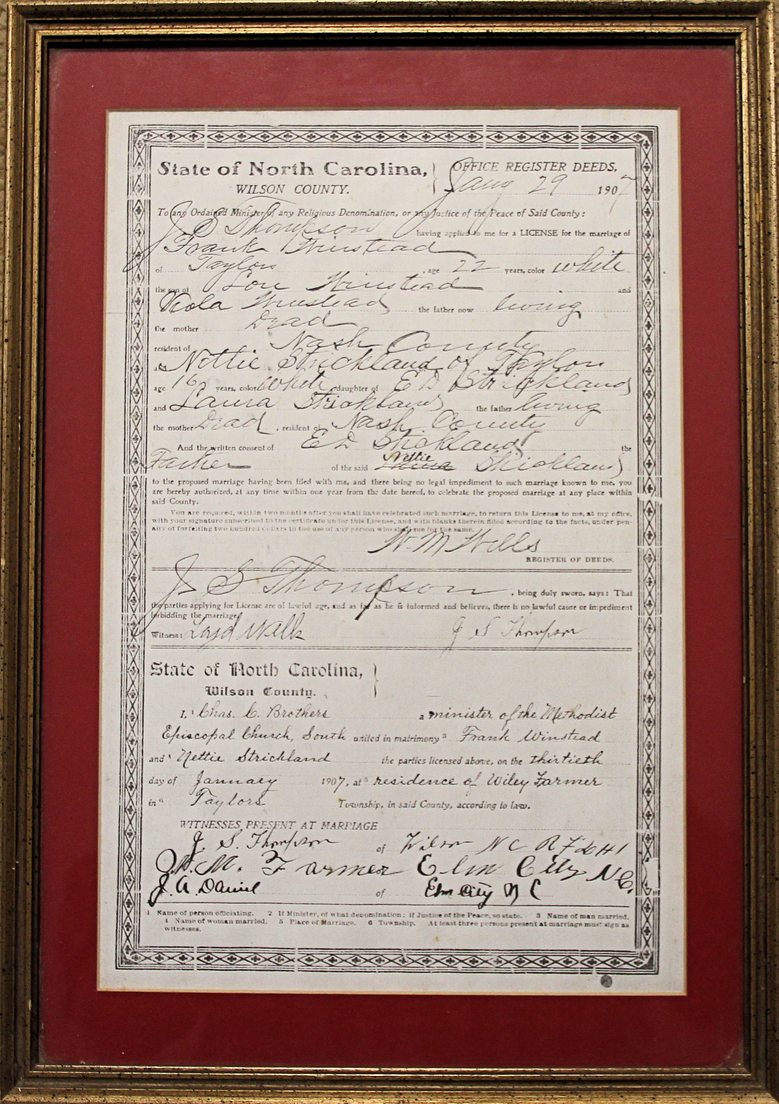 State of North Carolina, OFFICE REGISTER DEEDS,
WILSON COUNTY. Jany 29 1907
To any Ordained Minister of any Religious Denomination, or any Justice of the Peace of Said County:
J S Thompson having applied to me for a LICENSE for the marriage of
Frank Winstead
of Taylors, age 22 years, color white
the son of Lou Winstead and
Viola Winstead the father now living
the mother Dead
resident of Nash County
and Nettie Strickland of Taylors
age 16 years, color White daughter of E D Strickland
and Laura Strickland, the father living
the mother Dead, resident of Nash County
And the written consent of E D Strickland the
Father of the said Nettie Strickland
to the proposed marriage having been filed with me, and there being no legal impediment to such marriage known to me, you
are hereby authorized, at any time within one year from the date hereof, to celebrate the proposed marriage at any place within
said County.
You are required, within two months after you shall have celebrated such marriage, to return this License to me, at my office,
with your signature subscribed to the certificate under this License, and with blanks therein filled according to the facts, under pen-
alty of forfeiting two hundred dollars to the use of any person who shall sue for the same.
W. M Wells
REGISTER OF DEEDS.
J S Thompson, being duly sworn, says: That
the parties applying for License are of lawful age, and as far as he is informed and believes, there is no lawful cause or impediment
forbidding the marriage.
Witness: Wells J S Thompson
State of North Carolina,
Wilson County.
I, ¹ Chas. C. Brothers a ² minister of the Methodist
Episcopal Church, South united in matrimony ³ Frank Winstead
and ⁴ Nettie Strickland the parties licensed above, on the thirtieth
day of January 1907, at ⁵ residence of Wiley Farmer
in ⁶ Taylors Township, in said County, according to law.
WITNESSES PRESENT AT MARRIAGE
J. S. Thompson of Wilson N C R F D #1
M. Farmer Elm City N.C.
J. A. Daniel of Elm City N C
1 Name of person officiating. 2 If Minister, of what denomination; if Justice of the Peace, so state. 3 Name of man married.
4 Name of woman married. 5 Place of Marriage. 6 Township. At least three persons present at marriage must sign as
witnesses.